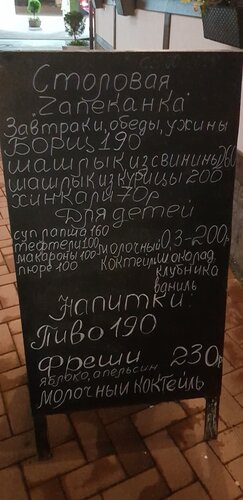 Столовая
Zапеканка
Завтраки, обеды, ужины
БОРЩ 190
шашлык из свинины 260
шашлык из курицы 200
хинкали 70р
Для детей
суп лапша 160
тефтели 100 молочный 0,3-200р
макароны 100 коктейль шоколад
пюре 100 клубника
ваниль
Напитки:
Пиво 190
Фреши 230р
яблоко, апельсин
молочный коктейль